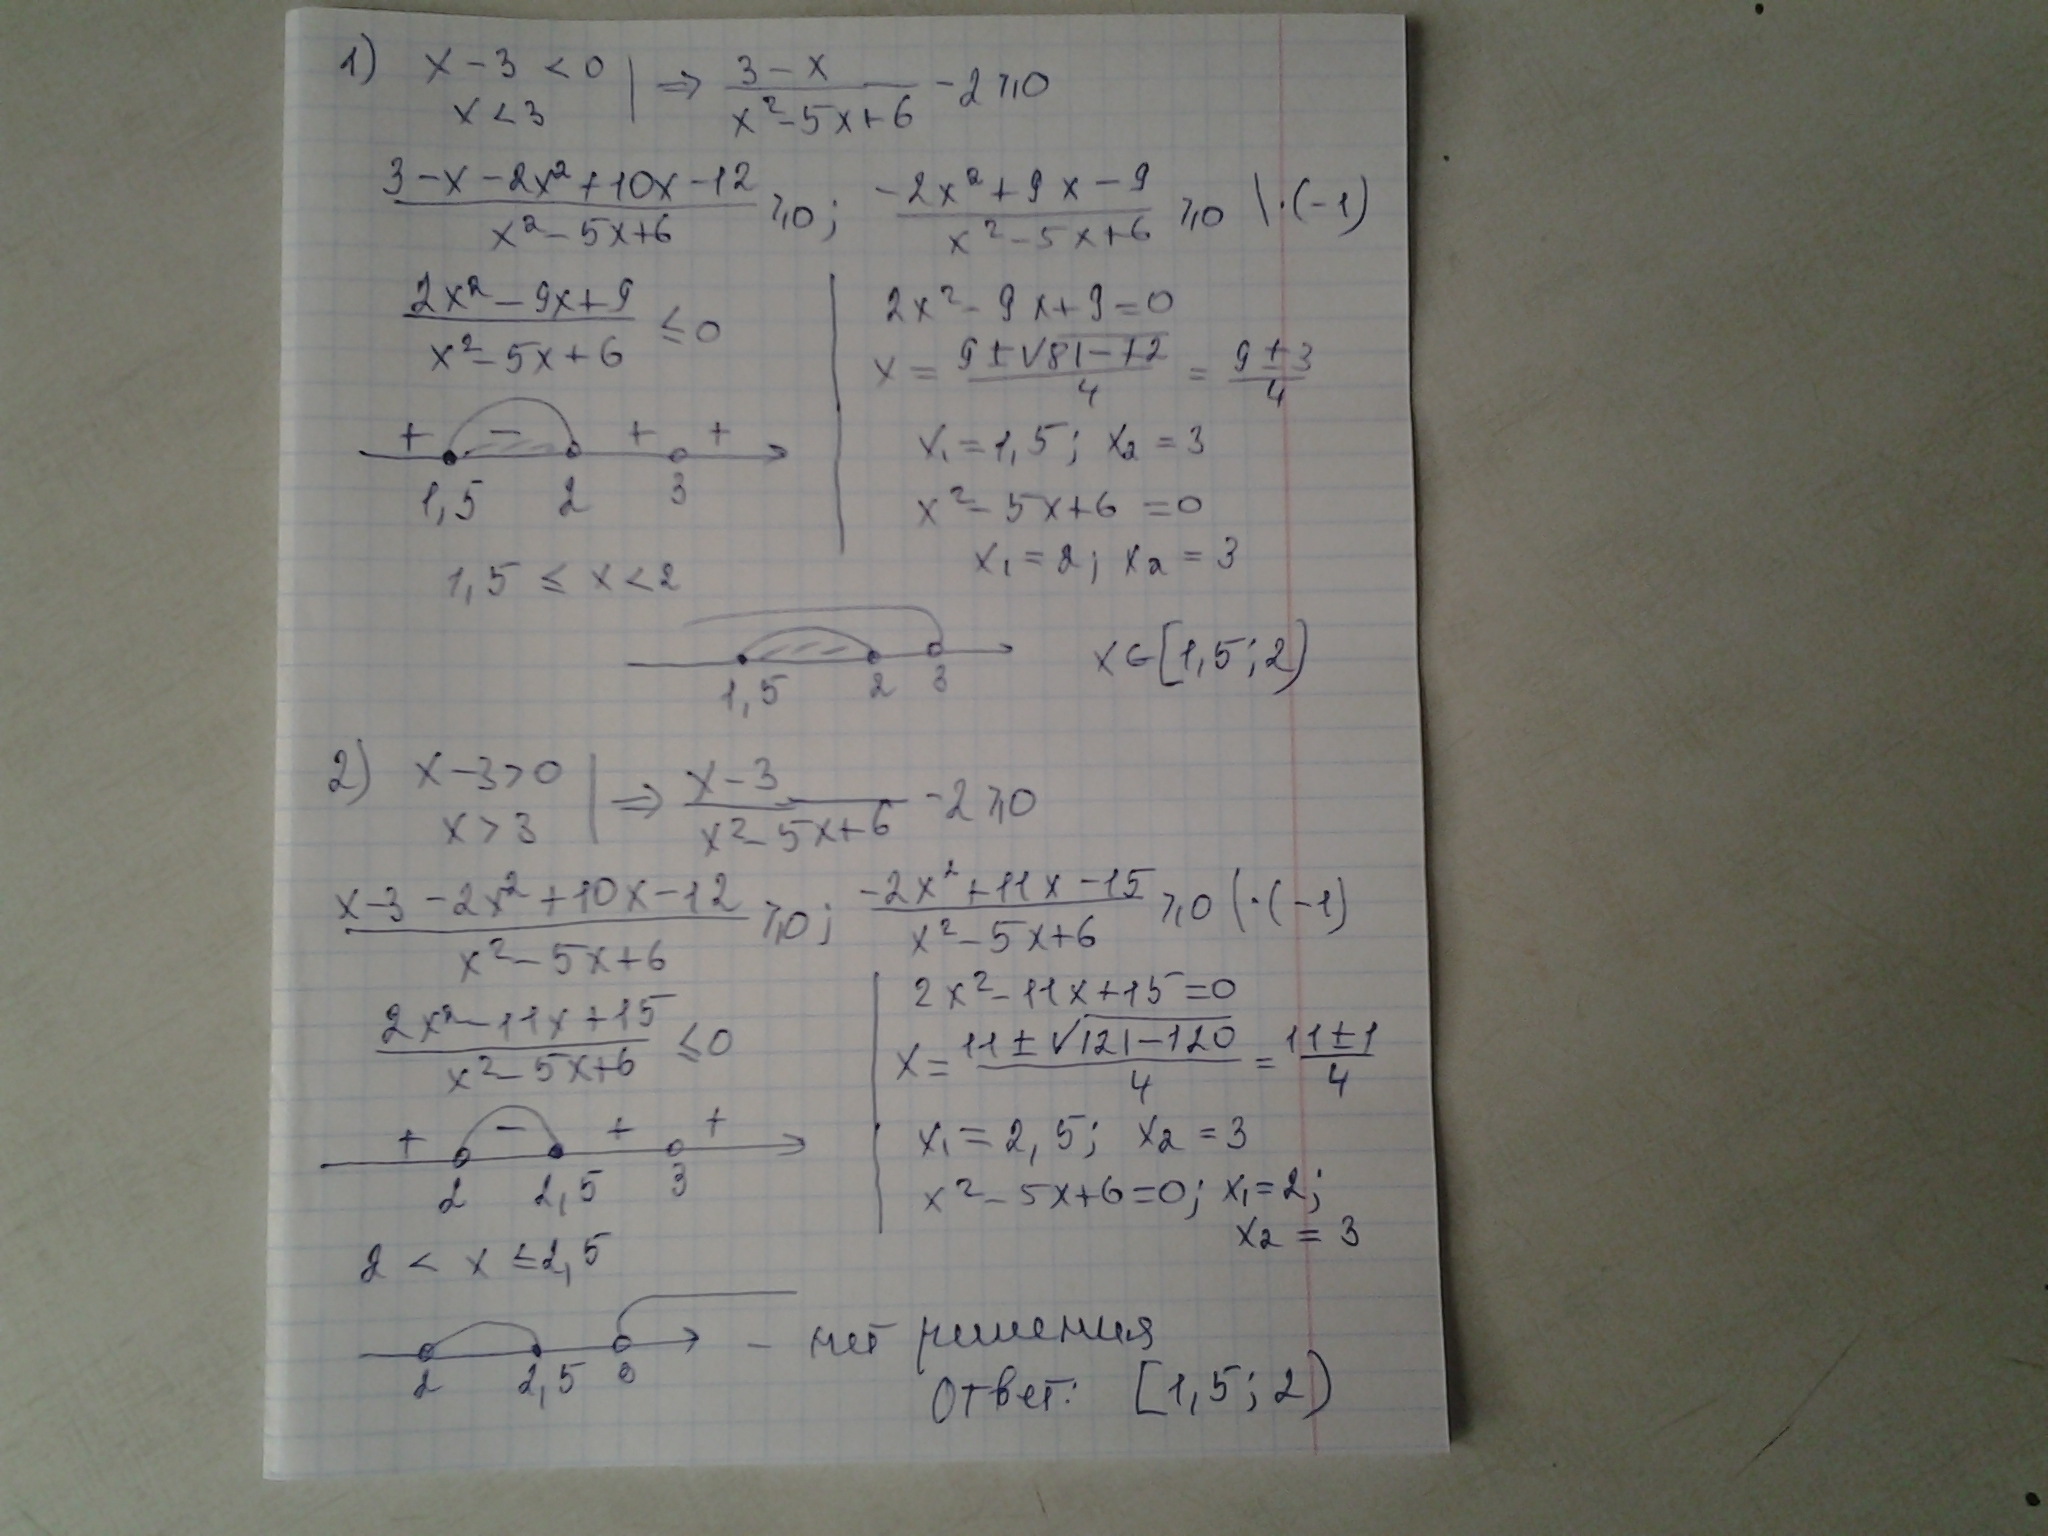 1) x - 3 < 0 | ⇒ (3 - x)/(x² - 5x + 6) - 2 ≥ 0
x < 3
(3 - x - 2x² + 10x - 12)/(x² - 5x + 6) ≥ 0; (-2x² + 9x - 9)/(x² - 5x + 6) ≥ 0 | · (-1)
(2x² - 9x + 9)/(x² - 5x + 6) ≤ 0
+ - + +
1,5 2 3
1,5 ≤ x < 2
2x² - 9x + 9 = 0
x = (9 ± √81 - 72)/4 = (9 ± 3)/4
x₁ = 1,5; x₂ = 3
x² - 5x + 6 = 0
x₁ = 2; x₂ = 3
1,5 2 3
x ∈ [1,5; 2)
2) x - 3 > 0 | ⇒ (x - 3)/(x² - 5x + 6) - 2 ≥ 0
x > 3
(x - 3 - 2x² + 10x - 12)/(x² - 5x + 6) ≥ 0; (-2x² + 11x - 15)/(x² - 5x + 6) ≥ 0 | · (-1)
(2x² - 11x + 15)/(x² - 5x + 6) ≤ 0
+ - + +
2 2,5 3
2 < x ≤ 2,5
2x² - 11x + 15 = 0
x = (11 ± √121 - 120)/4 = (11 ± 1)/4
x₁ = 2,5; x₂ = 3
x² - 5x + 6 = 0; x₁ = 2;
x₂ = 3
2 2,5 3 - нет решения
Ответ: [1,5; 2)